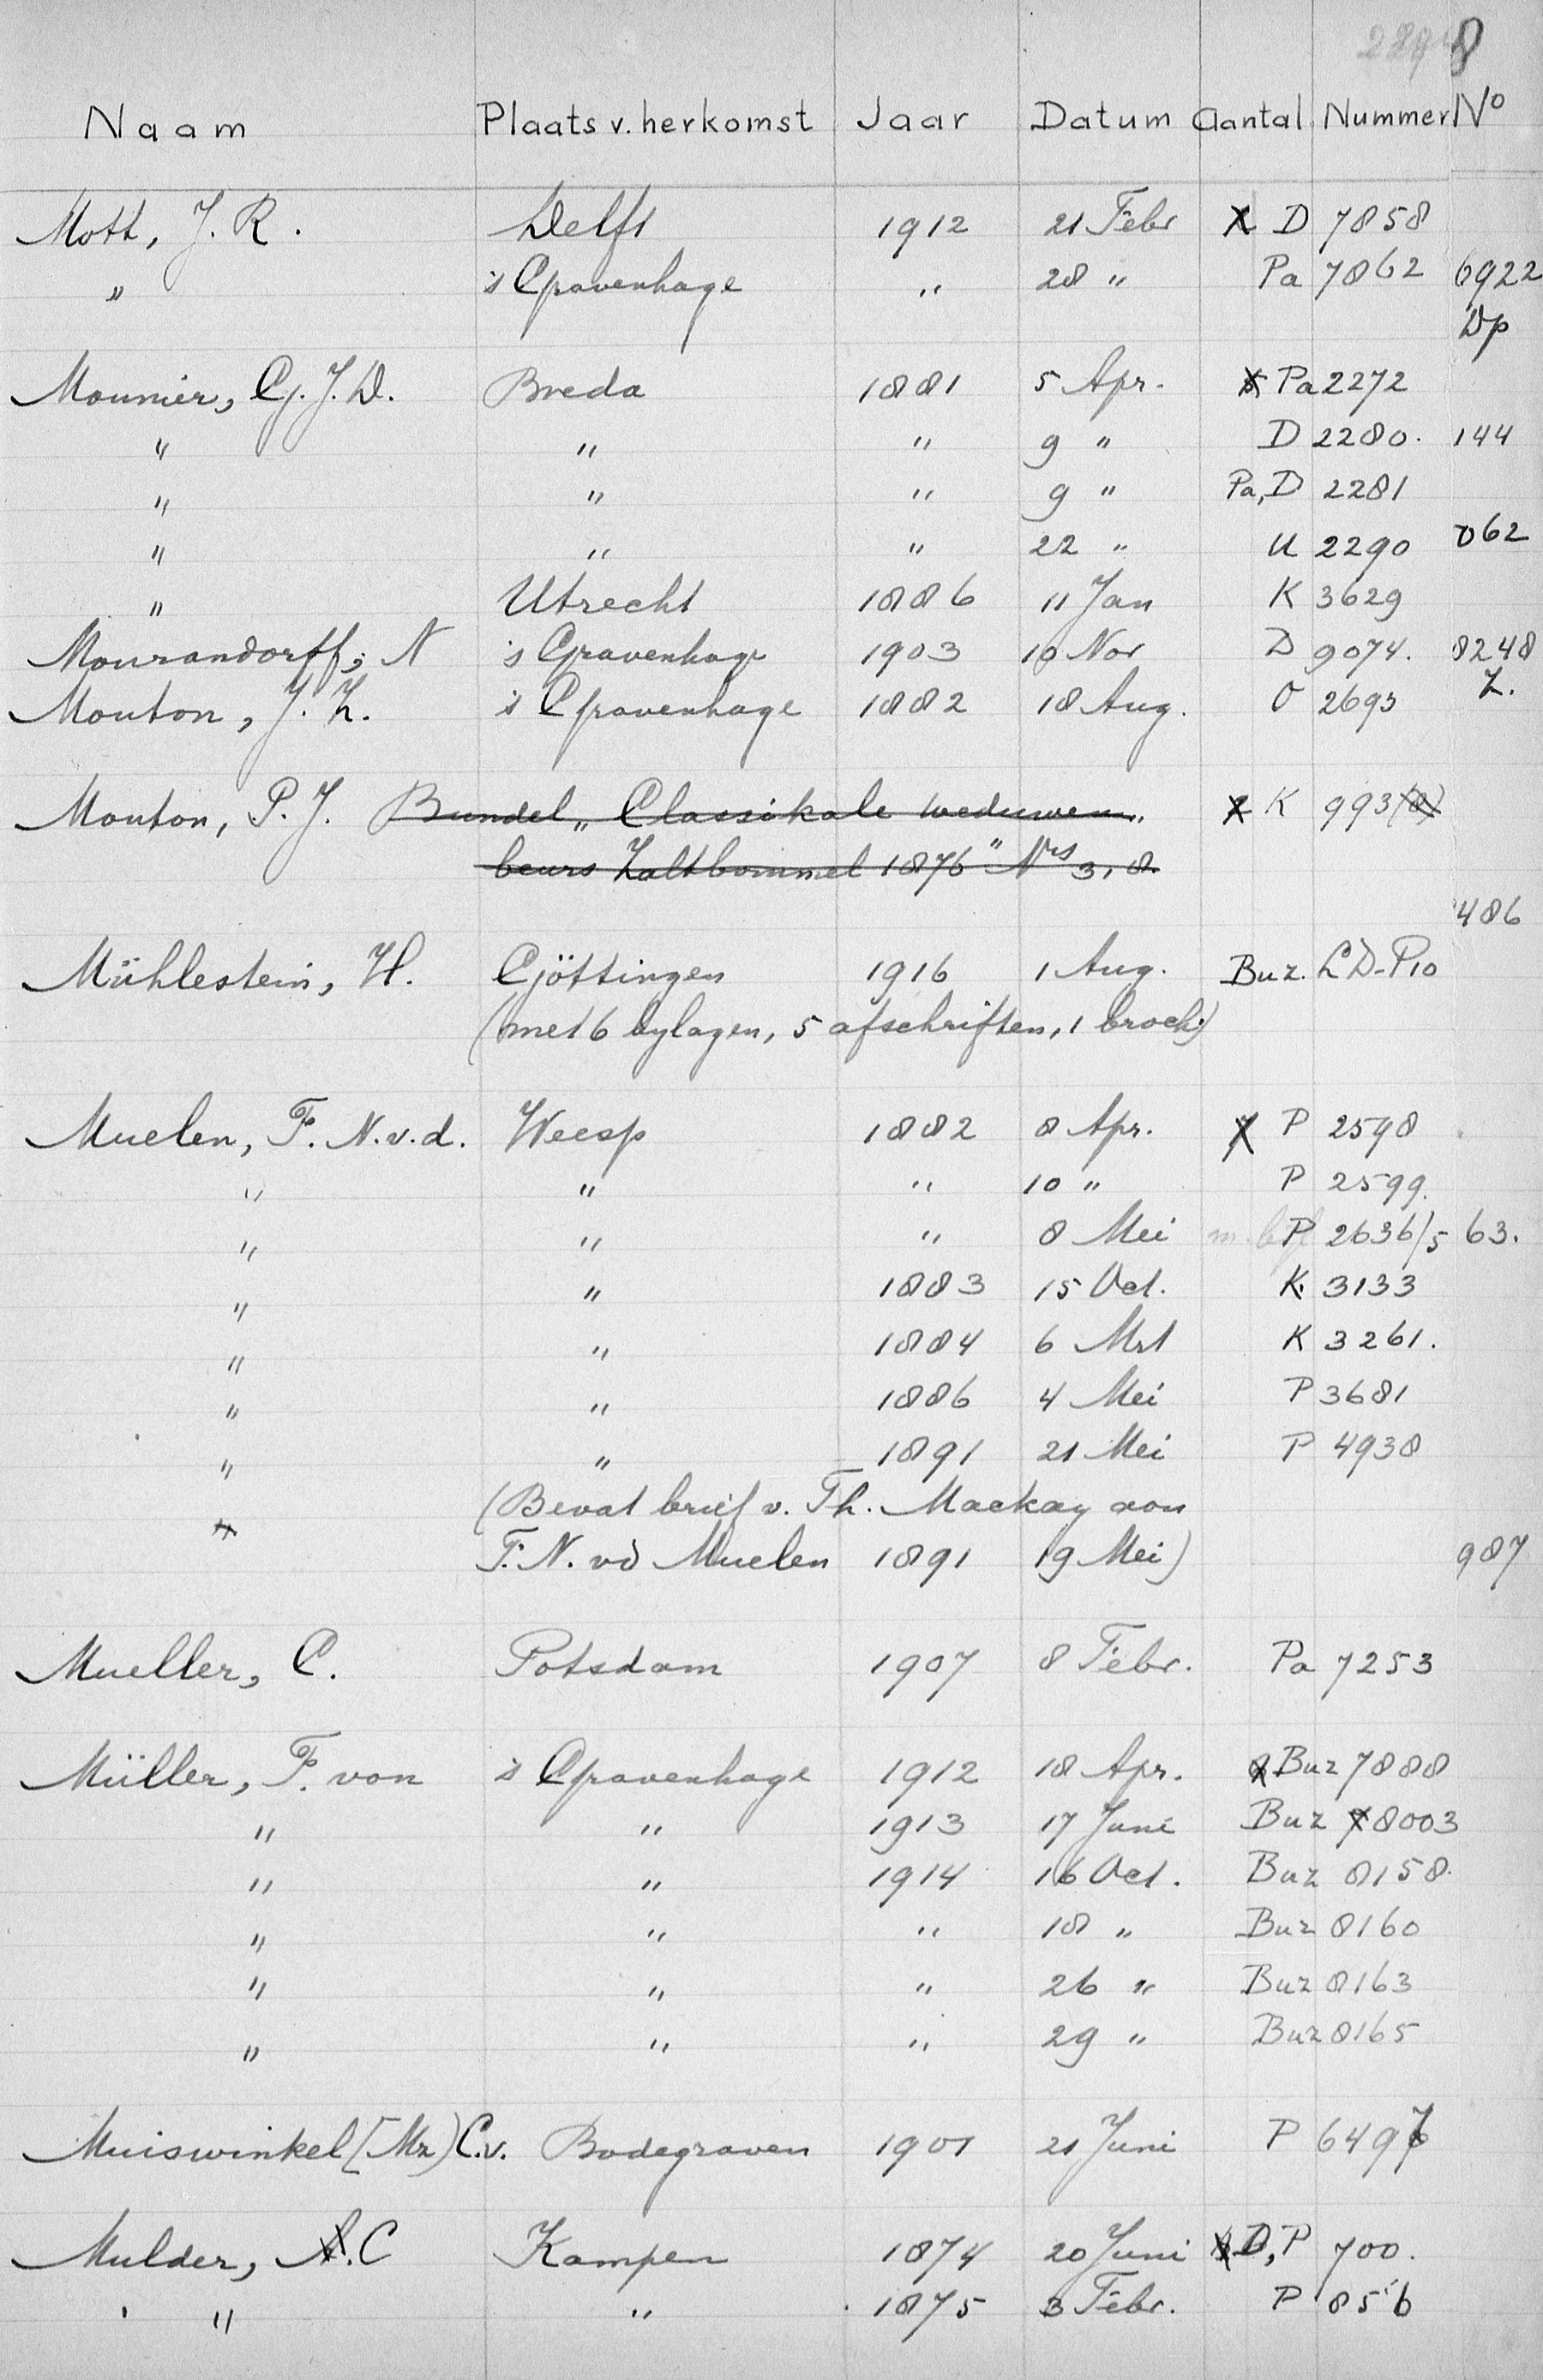 Naam Plaats v. herkomst Jaar Datum Aantal Nummer No
Mott, J. R. Delft 1912 21 Febr D 7858
" 's Gravenhage " 28 " Pa 7862 6922
Dp
Mounier, G. J. D. Breda 1881 5 Apr. Pa 2272
" " " 9 " D 2280. 144
" " " 9 " Pa, D 2281
" " " 22 " U 2290 062
" Utrecht 1886 11 Jan K 3629
Mourandorff, N 's Gravenhage 1903 10 Nov D 9074. 8248
Mouton, J. Z. 's Gravenhage 1882 18 Aug. O 2693 Z.
Mouton, P. J. Bundel „Classikale weduwen„ K 993(8)
beurs Zaltbommel 1876" Nrs 3, 8.
486
Mühlestein, H. Göttingen 1916 1 Aug. Buz. LD-P10
(met 6 bylagen, 5 afschriften, 1 broch.)
Muelen, F. N. v. d. Weesp 1882 8 Apr. P 2598
" " " 10 " P 2599.
" " " 8 Mei m. P 2636/5 63.
" " 1883 15 Oct. K. 3133
" " 1884 6 Mrt K 3261.
" " 1886 4 Mei P 3681
" " 1891 21 Mei P 4938
" (Bevat brief v. Th. Mackay aan
F. N. vd Muelen 1891 19 Mei) 987
Mueller, C. Potsdam 1907 8 Febr. Pa 7253
Müller, F. von 's Gravenhage 1912 18 Apr. Buz 7888
" " 1913 17 Juni Buz 8003
" " 1914 16 Oct. Buz 8158.
" " " 18 " Buz 8160
" " " 26 " Buz 8163
" " " 29 " Buz 8165
Muiswinkel [Mz) C. v. Bodegraven 1901 21 Juni P 6497
Mulder, A. C Kampen 1874 20 Juni D, P 700.
" " 1875 3 Febr. P 856